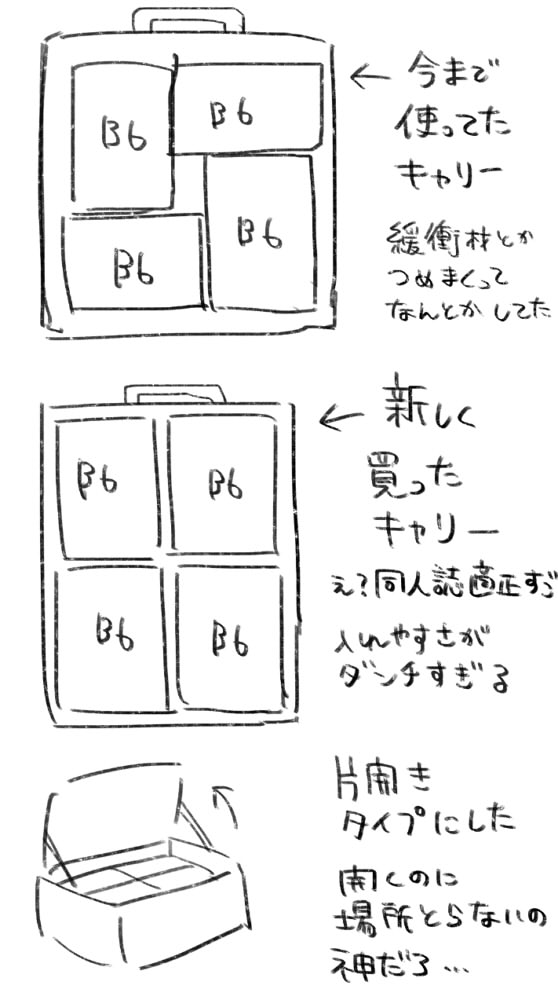 B6
B6
B6
B6
← 今まで
使ってた
キャリー
緩衝材とか
つめまくって
なんとかしてた
B6
B6
B6
B6
← 新しく
買った
キャリー
え?同人誌適正すご
入れやすさが
ダンチすぎる
片開き
タイプにした
開くのに
場所とらないの
神だろ…